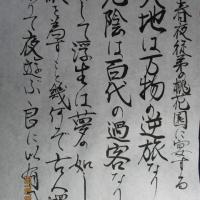 春夜従弟の桃花園に宴する
天地は万物の逆旅なり
光陰は百代の過客なり
して浮生は夢の如し
為すこと幾何ぞ古人
て夜遊ぶ良に以有